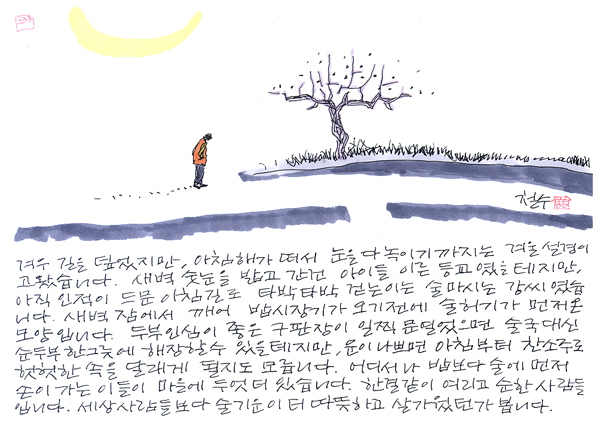 철수
겨우 길을 덮었지만, 아침 해가 떠서 눈을 다 녹이기 까지는 겨울 설경이
고왔습니다. 새벽 숫눈을 밟고 간건 아이들 이른 등교였을테지만,
아직 인적이 드문 아침길로 타박타박 걷는이는 술마시는 강씨였습
니다. 새벽 잠에서 깨어 밥시장기가 오기전에 술허기가 먼저온
모양입니다. 두부인심이 좋은 구판장이 일찍 문열었으면 술국대신
순두부 한그릇에 해장할수 있을테지만, 운이나쁘면 아침부터 찬소주로
헛헛한 속을 달래게 될지도 모릅니다. 어디서나 밥보다 술에 먼저
손이 가는 이들이 마을에 두엇 더 있습니다. 한결같이 여리고 순한 사람들
입니다. 세상사람들보다 술기운이 더 따뜻하고 살가웠던가 봅니다.